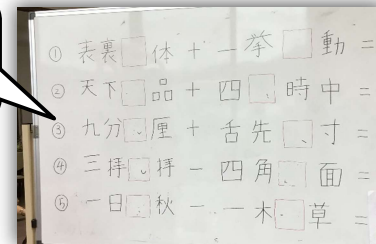 ① 表裏□体 + 一挙□動 =
② 天下□品 + 四□時中 =
③ 九分□厘 + 舌先□寸 =
④ 三拝□拝 - 四角□面 =
⑤ 一日□秋 - 一木□草 =